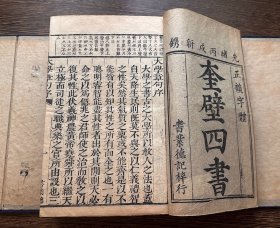 光緒丙戌新鐫
正韻字體
奎壁四書
書業德記梓行
大學章句序
大學之書古之大學所以教人之法也蓋
自天降生民則既莫不與之以仁義禮智
之性矣然其氣質之稟或不能齊是以不
能皆有以知其性之所有而全之也一有
聰明睿智能盡其性者出於其間則天必
命之以爲億兆之君師使之治而教之以
復其性此伏羲神農黃帝堯舜所以繼天
立極而司徒之職典樂之官所由設也三